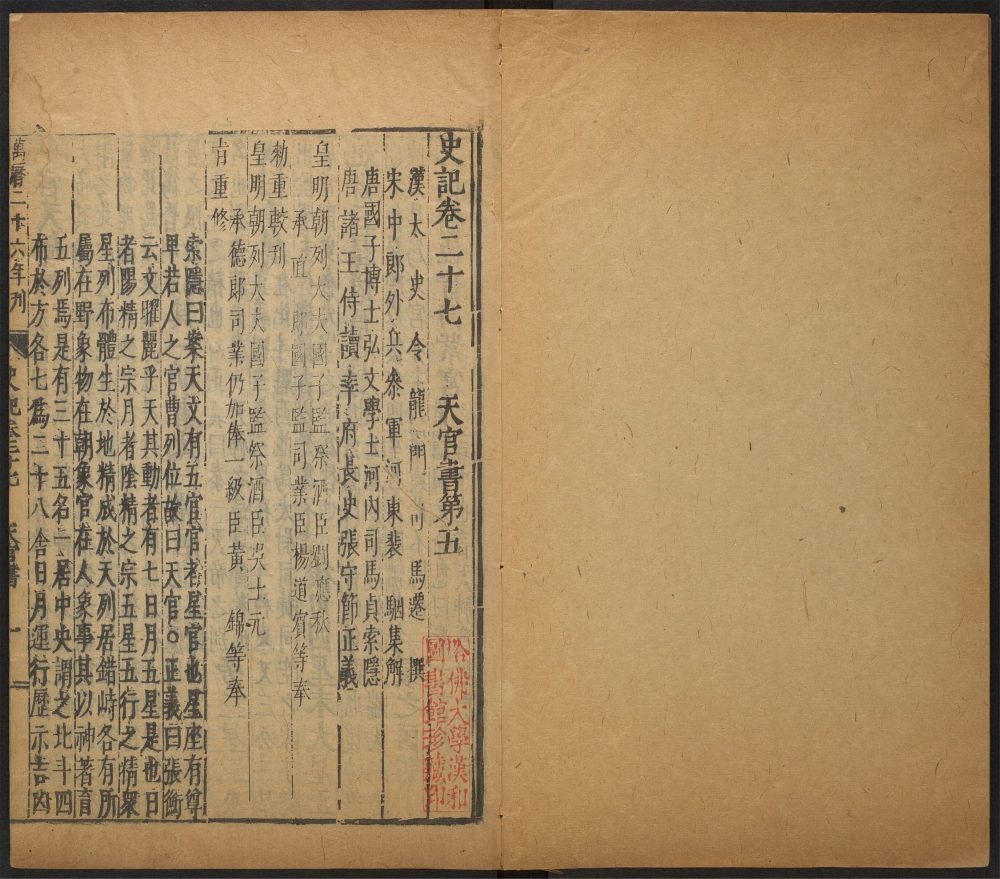 史記卷二十七 天官書第五
漢太史令龍門司馬遷 撰
宋中郎外兵叅軍河東裴駰集解
唐國子博士弘文學士河內司馬貞索隱
唐諸王侍讀率府長史張守節正義
皇明朝列大夫國子監祭酒臣劉應秋
承直郎國子監司業臣楊道賓等奉
勑重較刋
皇明朝列大夫國子監祭酒臣吳士元
承德郎司業仍加俸一級臣黃 錦等奉
旨重修
索隱曰案天文有五官官者星官也星座有尊
卑若人之官曹列位故曰天官○正義曰張衡
云文曜麗乎天其動者有七日月五星是也日
者陽精之宗月者陰精之宗五星五行之精衆
星列布體生於地精成於天列居錯峙各有所
屬在野象物在朝象官在人象事其以神著有
五列焉是有三十五名一居中央謂之北斗四
布於方各七爲二十八舍日月運行歷示吉凶
萬曆二十六年刋 史記卷二十七 天官書 一
哈佛大學漢和
圖書館珍藏印